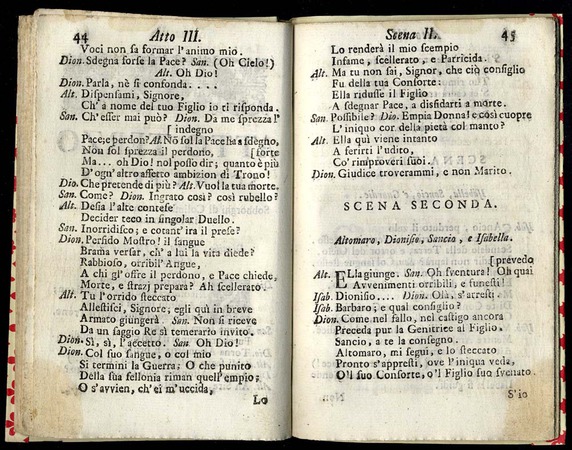 44 Atto III.
Voci non sa formar l'animo mio.
Dion. Sdegna forse la Pace? San. (Oh Cielo!)
Alt. Oh Dio!
Dion. Parla, nè si confonda. . . .
Alt. Dispensami, Signore,
Ch' a nome del tuo Figlio io ti risponda.
San. Ch' esser mai può? Dion. Da me sprezza l'
[ indegno
Pace, e perdon? Al. Nò sol la Pace ha a sdegno,
Non sol sprezza il perdono, [ forte
Ma... oh Dio! nol posso dir; quanto è più
D' ogn' altro affetto ambizion di Trono!
Dio. Che pretende di più? Alt. Vuol la tua morte.
San. Come? Dion. Ingrato così? così rubello?
Alt. Desia l'alte contese
Decider teco in singolar Duello.
San. Inorridisco; e cotant' ira il prese?
Dion. Perfido Mostro! il sangue
Brama versar, ch' a lui la vita diede?
Rabbioso, orribil' Angue,
A chi gl' offre il perdono, e Pace chiede,
Morte, e strazj prepara? Ah scellerato.
Alt. Tu l'orrido steccato
Allestisci, Signore, egli quì in breve
Armato giungerà. San. Non si riceve
Da un saggio Re sì temerario invito.
Dion. Sì, sì, l'accetto. San. Oh Dio!
Dion. Col suo sangue, o col mio
Si termini la Guerra; O che punito
Della sua fellonia riman quell' empio;
O s'avvien, ch' ei m'uccida,
Lo
Scena II. 45
Lo renderà il mio scempio
Infame, scellerato, e Parricida.
Alt. Ma tu non sai, Signor, che ciò consiglio
Fu della tua Consorte:
Ella ridusse il Figlio
A sdegnar Pace, a disfidarti a morte.
San. Possibile? Dio. Empia Donna! e così cuopre
L' iniquo cor della pietà col manto?
Alt. Ella quì viene intanto
A ferirti l'udito,
Co' rimproveri suoi.
Dion. Giudice troverammi, e non Marito.
SCENA SECONDA.
Altomaro, Dionisio, Sancio, e Isabella.
[ prevedo
Alt. Ella giunge. San. Oh sventura! Oh quai
Avvenimenti orribili, e funesti!
Isab. Dionisio.... Dion. Olà, s'arresti.
Isab. Barbaro; e qual consiglio?
Dion. Come nel fallo, nel castigo ancora
Preceda pur la Genitrice al Figlio.
Sancio, a te la consegno.
Altomaro, mi segui, e lo steccato
Pronto s'appresti, ove l'iniqua veda,
O'l suo Consorte, o'l Figlio suo svenato.
S'io